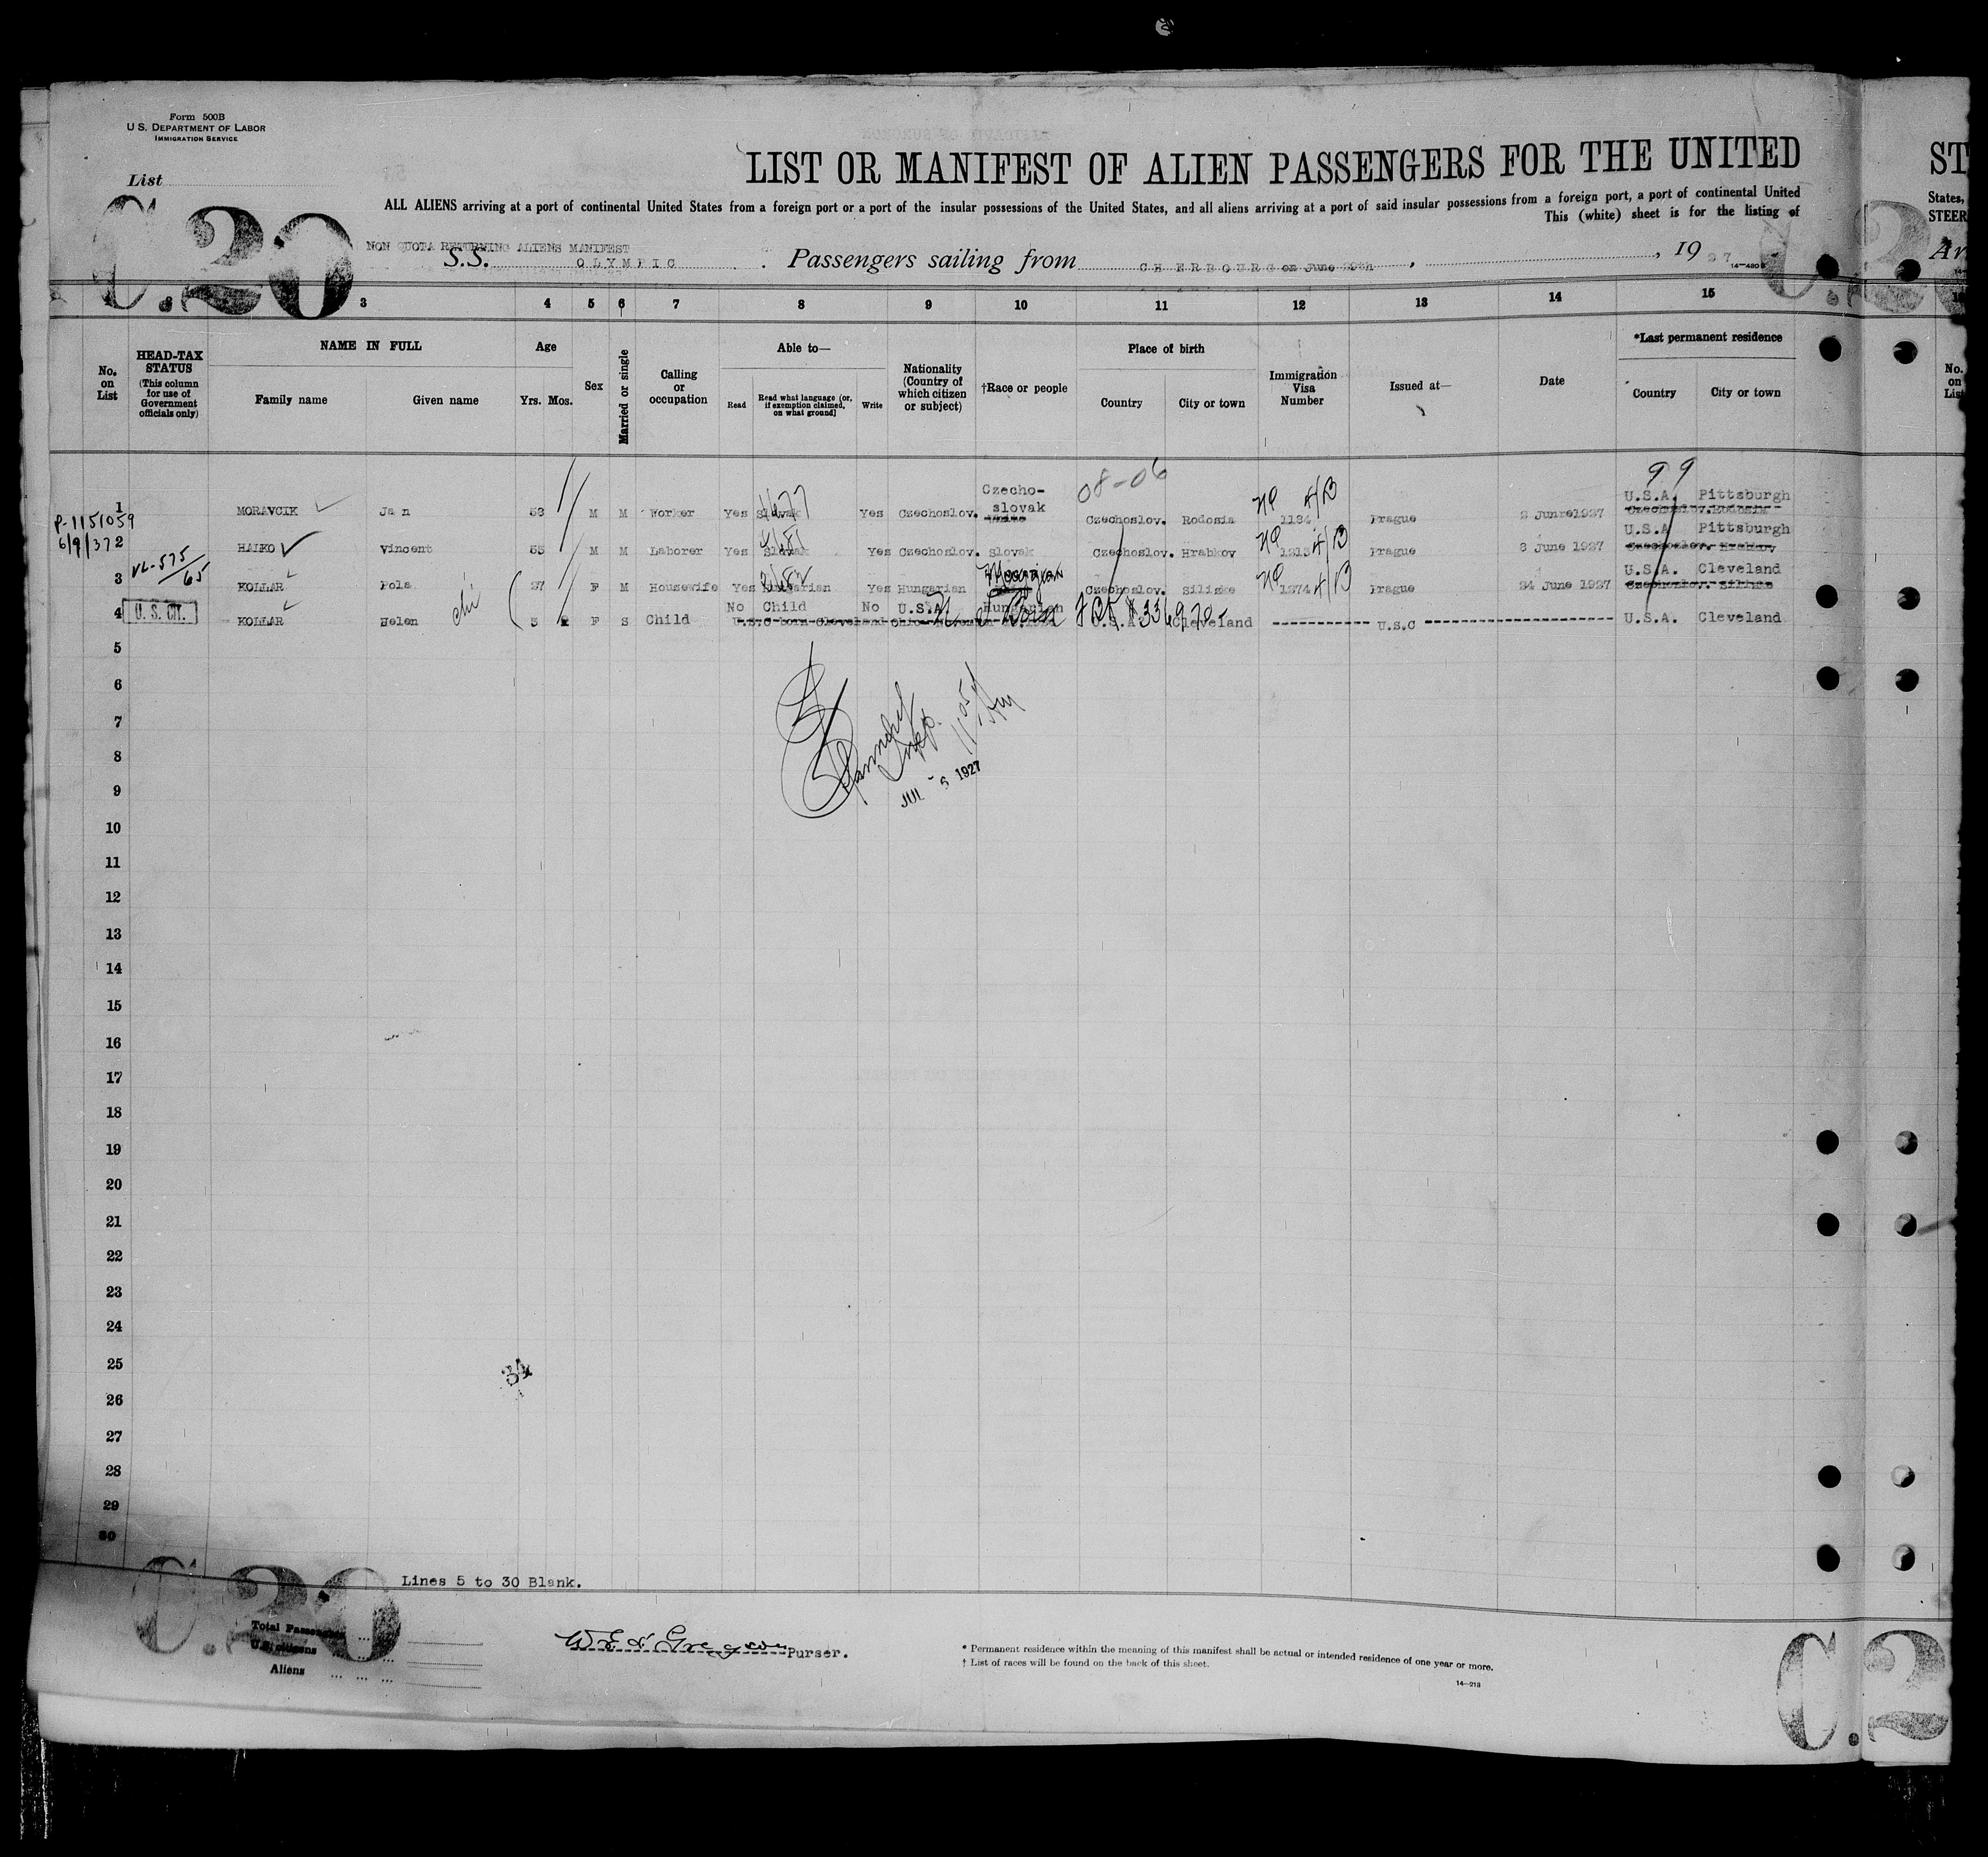 Form 500B
U.S. DEPARTMENT OF LABOR
IMMIGRATION SERVICE
List
LIST OR MANIFEST OF ALIEN PASSENGERS FOR THE UNITED
ST
ALL ALIENS arriving at a port of continental United States from a foreign port or a port of the insular possessions of the United States, and all aliens arriving at a port of said insular possessions from a foreign port, a port of continental United
States,
This (white) sheet is for the listing of
STEER
C.20
NON QUOTA RETURNING ALIENS MANIFEST
S.S. OLYMPIC. Passengers sailing from CHERBOURG on June 29th, , 1927
14-430 B
3 4 5 6 7 8 9 10 11 12 13 14 15
No. on List
HEAD-TAX STATUS (This column for use of Government officials only)
NAME IN FULL
Family name Given name
Age
Yrs. Mos.
Sex
Married or single
Calling or occupation
Able to—
Read Read what language (or, if exemption claimed, on what ground) Write
Nationality (Country of which citizen or subject)
†Race or people
Place of birth
Country City or town
Immigration Visa Number
Issued at—
Date
*Last permanent residence
Country City or town
No. on List
08-06
99
1 MORAVCIK Jan 53 M M Worker Yes Slovak Yes Czechoslov. Czecho-slovak Czechoslov. Rodosia 1184 Prague 2 June1927 U.S.A. Pittsburgh
P-1151059
6/9/37 2 HAIKO Vincent 55 M M Laborer Yes Slovak Yes Czechoslov. Slovak Czechoslov. Hrabkov 1213 4/B Prague 8 June 1927 U.S.A Pittsburgh
VL-575/65
3 KOLLAR Pola 27 F M Housewife Yes Hungarian Yes Hungarian Magyar Czechoslov. Siliske 1274 4/B Prague 24 June 1927 U.S.A. Cleveland
4 U. S. CIT. KOLLAR Helen chi 3 F S Child No Child No U.S.A Hungarian Cleveland U.S.C U.S.A. Cleveland
5
6
7
8
9
10
11
12
13
14
15
16
17
18
19
20
21
22
23
24
25
26
27
28
29
30
Insp.
JUL - 6 1927
34
Lines 5 to 30 Blank.
C.20
Total Passengers
U.S. citizens
Aliens
Purser.
* Permanent residence within the meaning of this manifest shall be actual or intended residence of one year or more.
† List of races will be found on the back of this sheet.
14-213
C.2